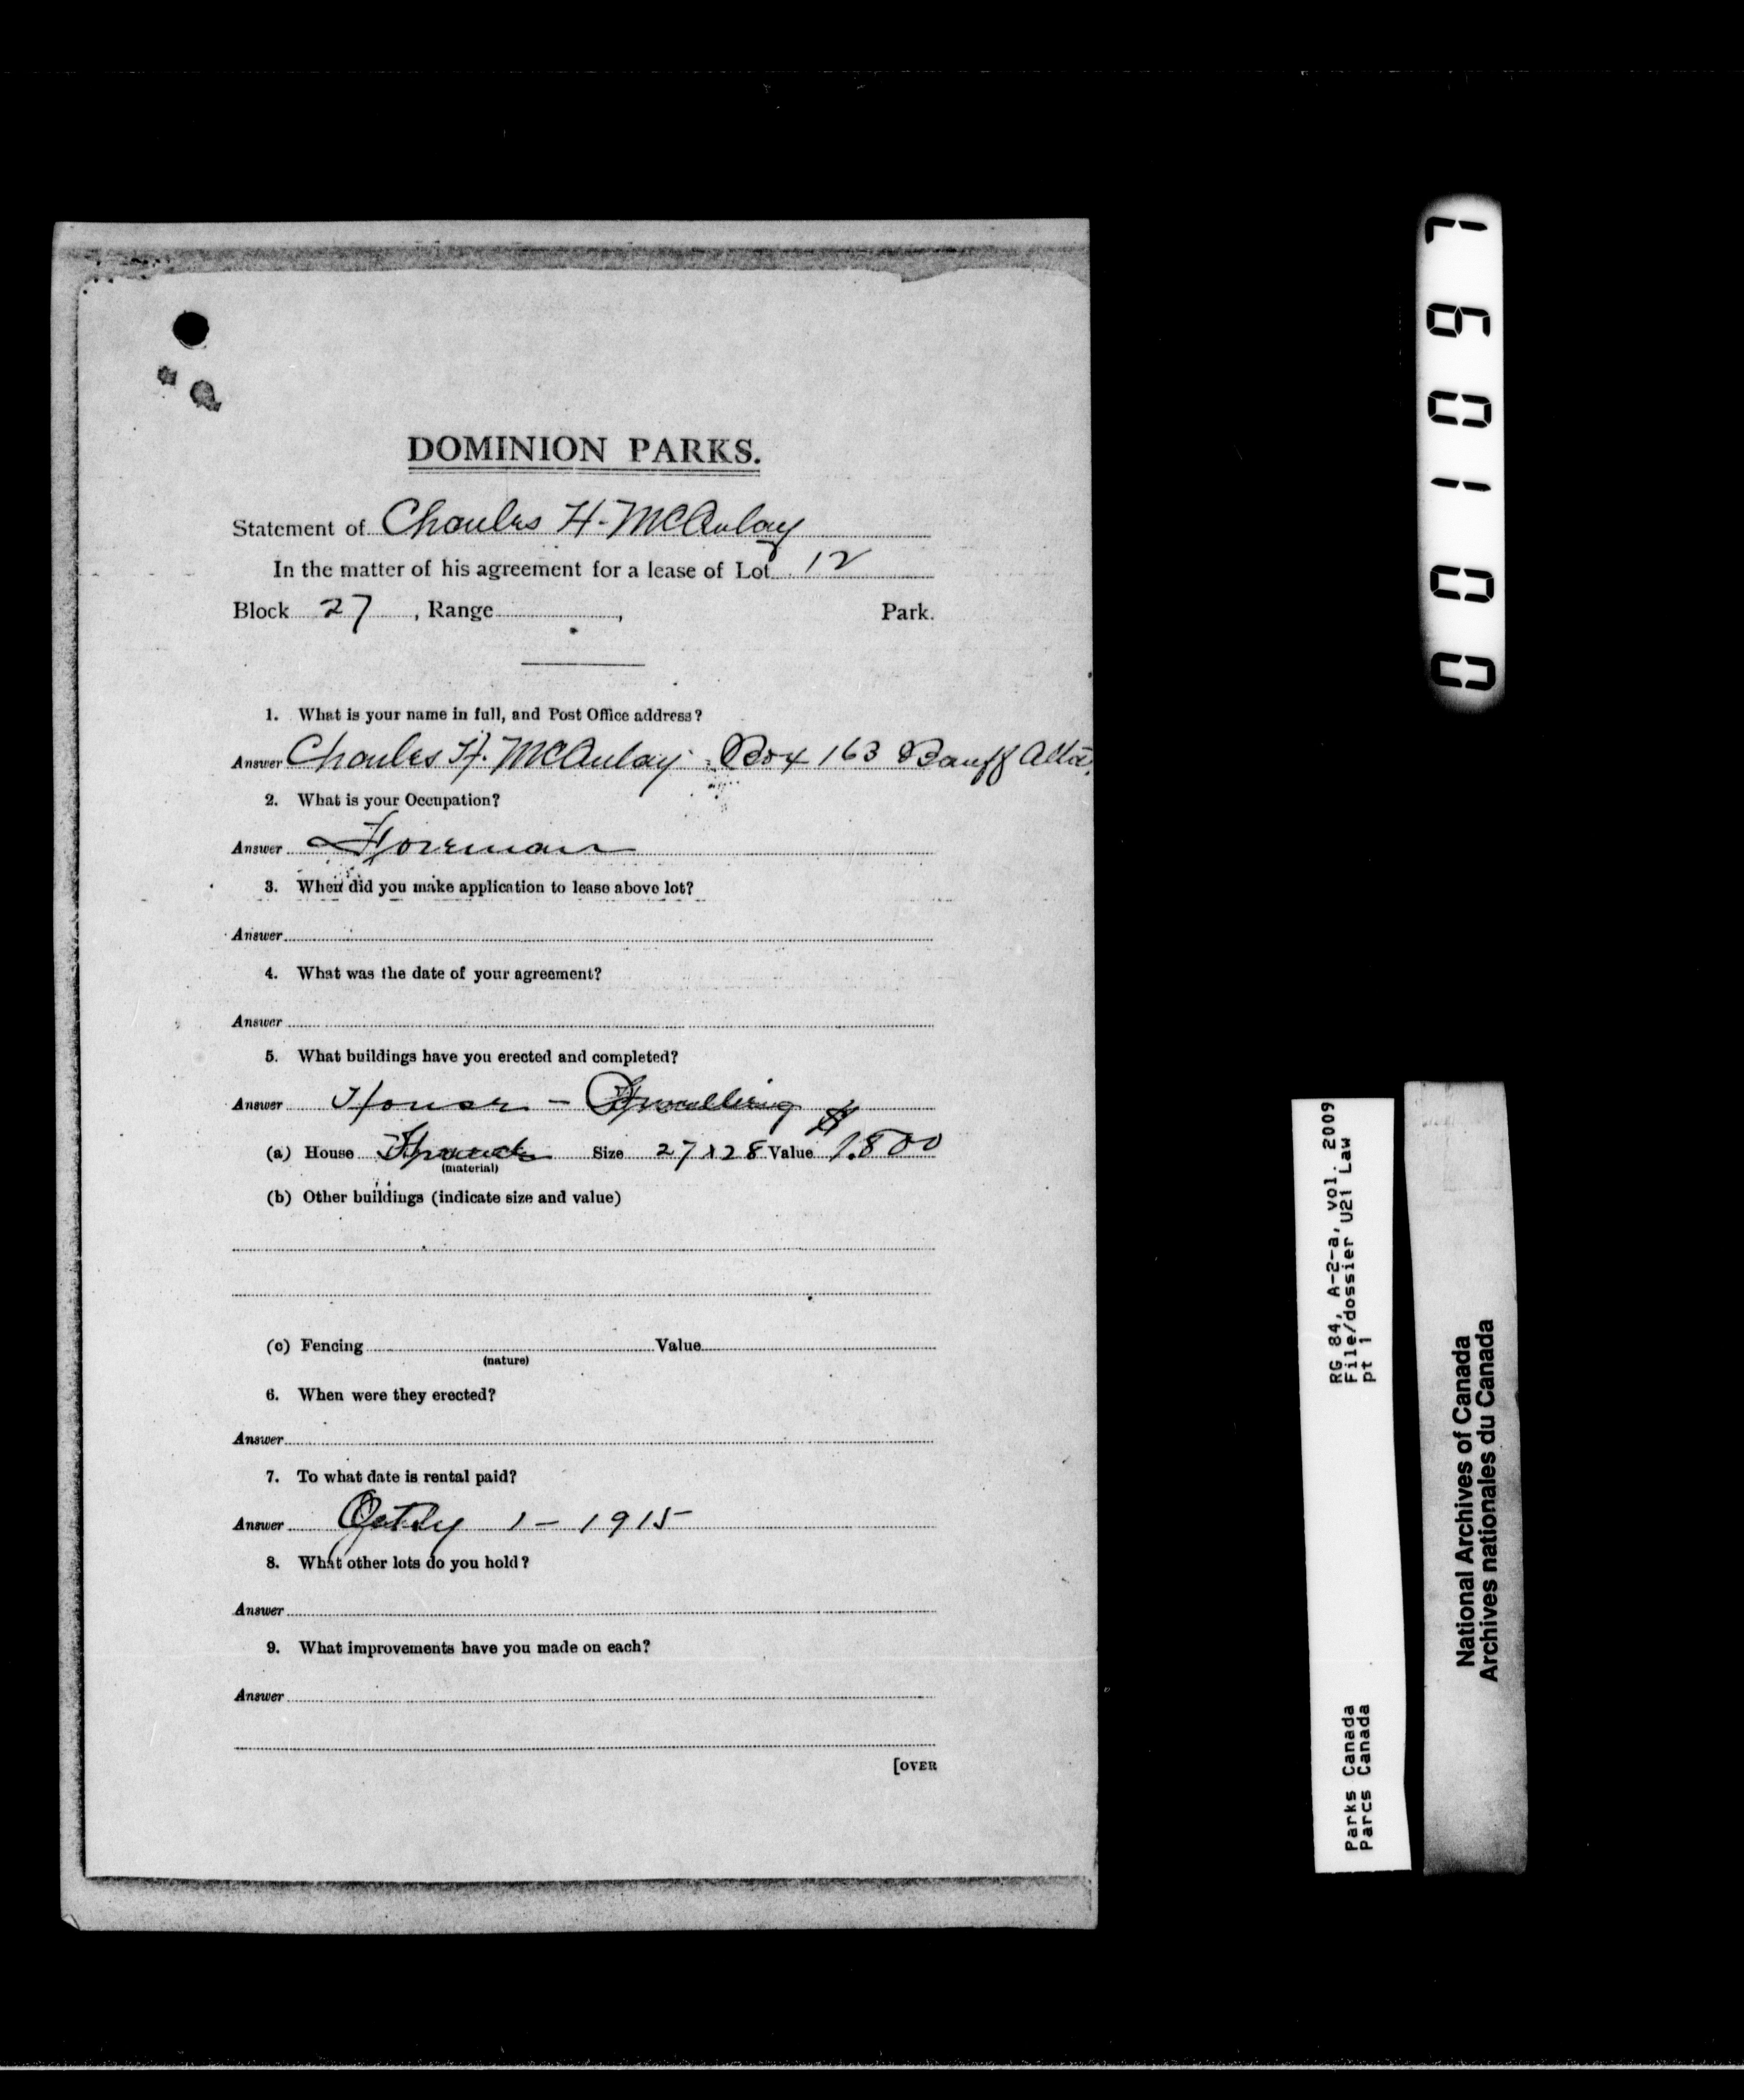 DOMINION PARKS.
Statement of Charles H. McAulay
In the matter of his agreement for a lease of Lot 12
Block 27, Range , Park.
1. What is your name in full, and Post Office address?
Answer Charles H. McAulay Box 163 Banff Alta.
2. What is your Occupation?
Answer Foreman
3. When did you make application to lease above lot?
Answer
4. What was the date of your agreement?
Answer
5. What buildings have you erected and completed?
Answer House - Dwelling
(a) House Size 27x28 Value $1.800
(material)
(b) Other buildings (indicate size and value)
(c) Fencing Value
(nature)
6. When were they erected?
Answer
7. To what date is rental paid?
Answer 1 - 1915
8. What other lots do you hold?
Answer
9. What improvements have you made on each?
Answer
[OVER
001097
RG 84, A-2-a, vol. 2009
File/dossier U21 Law
pt 1
Parks Canada
Parcs Canada
National Archives of Canada
Archives nationales du Canada